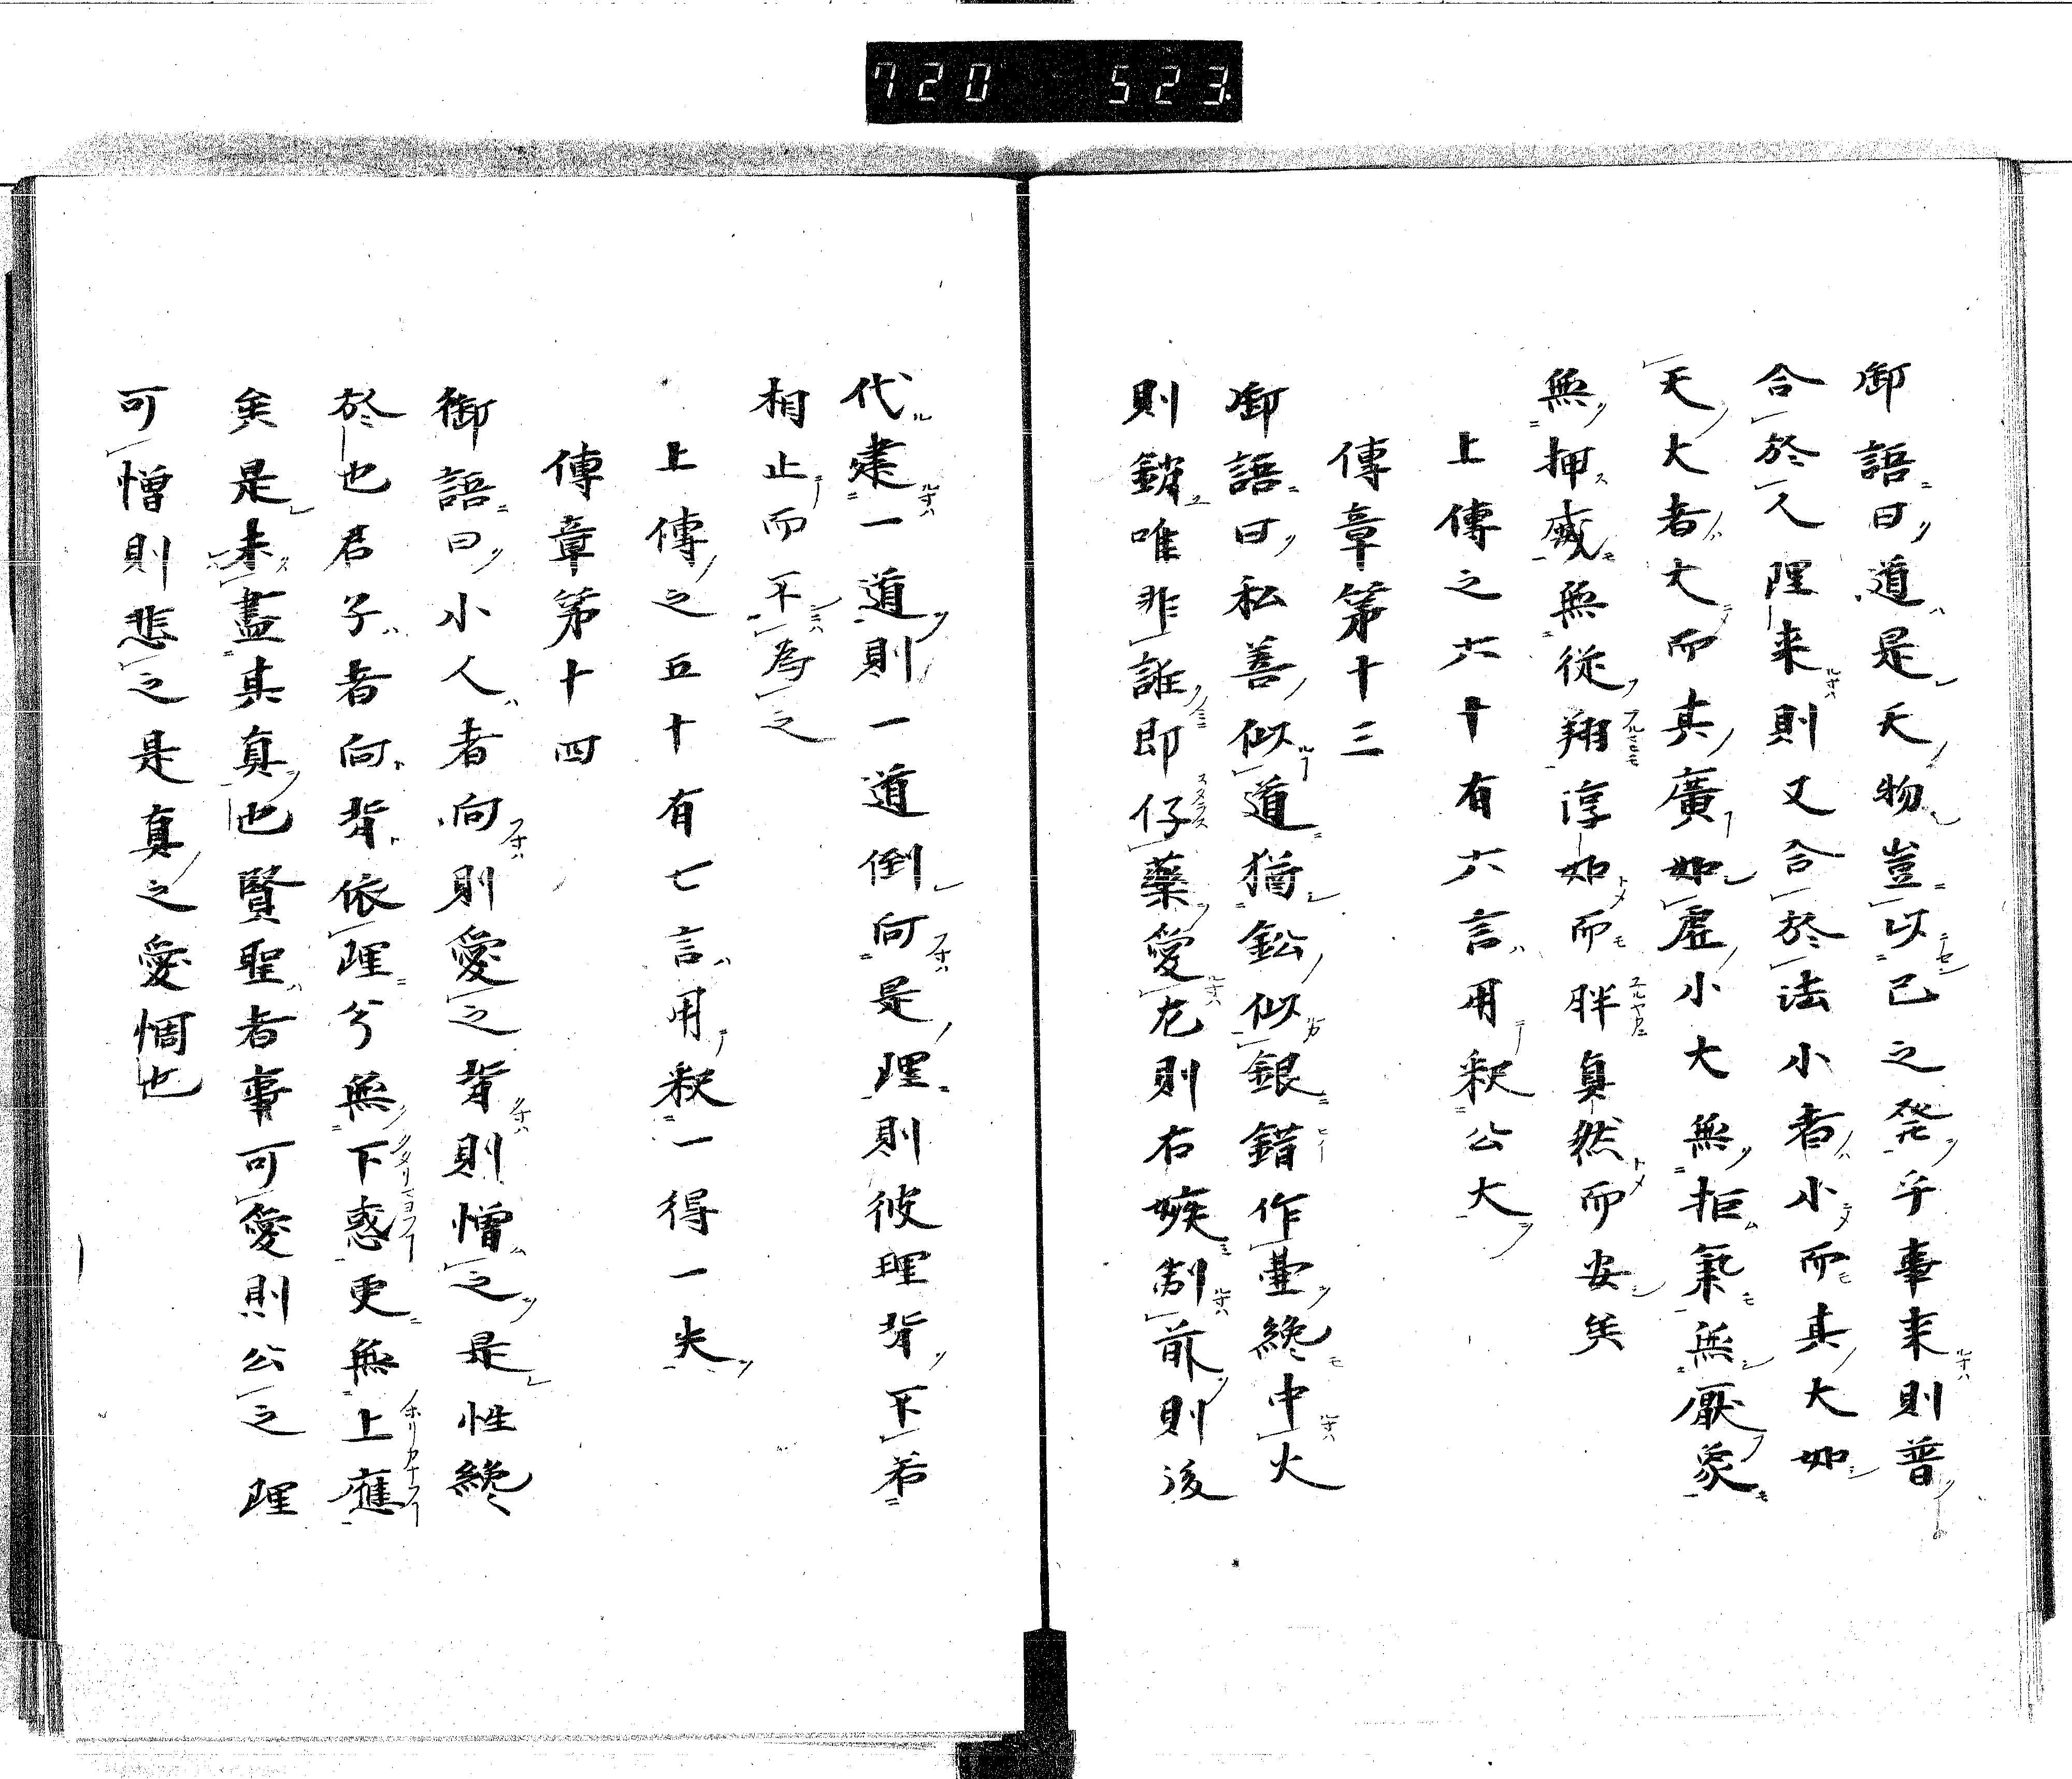 720 523
御語曰道是天物豈以己之発乎事来則普
合於人理来則又合於法小者小而其大如
天大者大而其廣如虚小大無拒氣無厭象
無押威無従翔淳如而胖真然而安矣
上傳之六十有六言用釈公大
傳章第十三
御語曰私善似道猶鈆似銀錯作臺纔中火
則銷唯非誰即仔藥愛左則右嫉制前則後
代建一道則一道倒向是理則彼理背不希
相止而不為之
上傳之五十有七言用釈一得一失
傳章第十四
御語曰小人者向則愛之背則憎之是性纔
於也君子者向背依理兮無下惑更無上應
矣是未盡其真也賢聖者事可愛則公之理
可憎則悲之是真之愛惆也